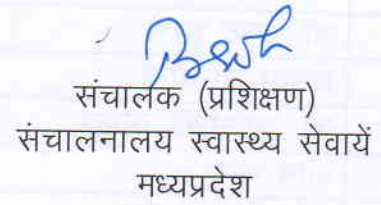 संचालक (प्रशिक्षण)
संचालनालय स्वास्थ्य सेवायें
मध्यप्रदेश